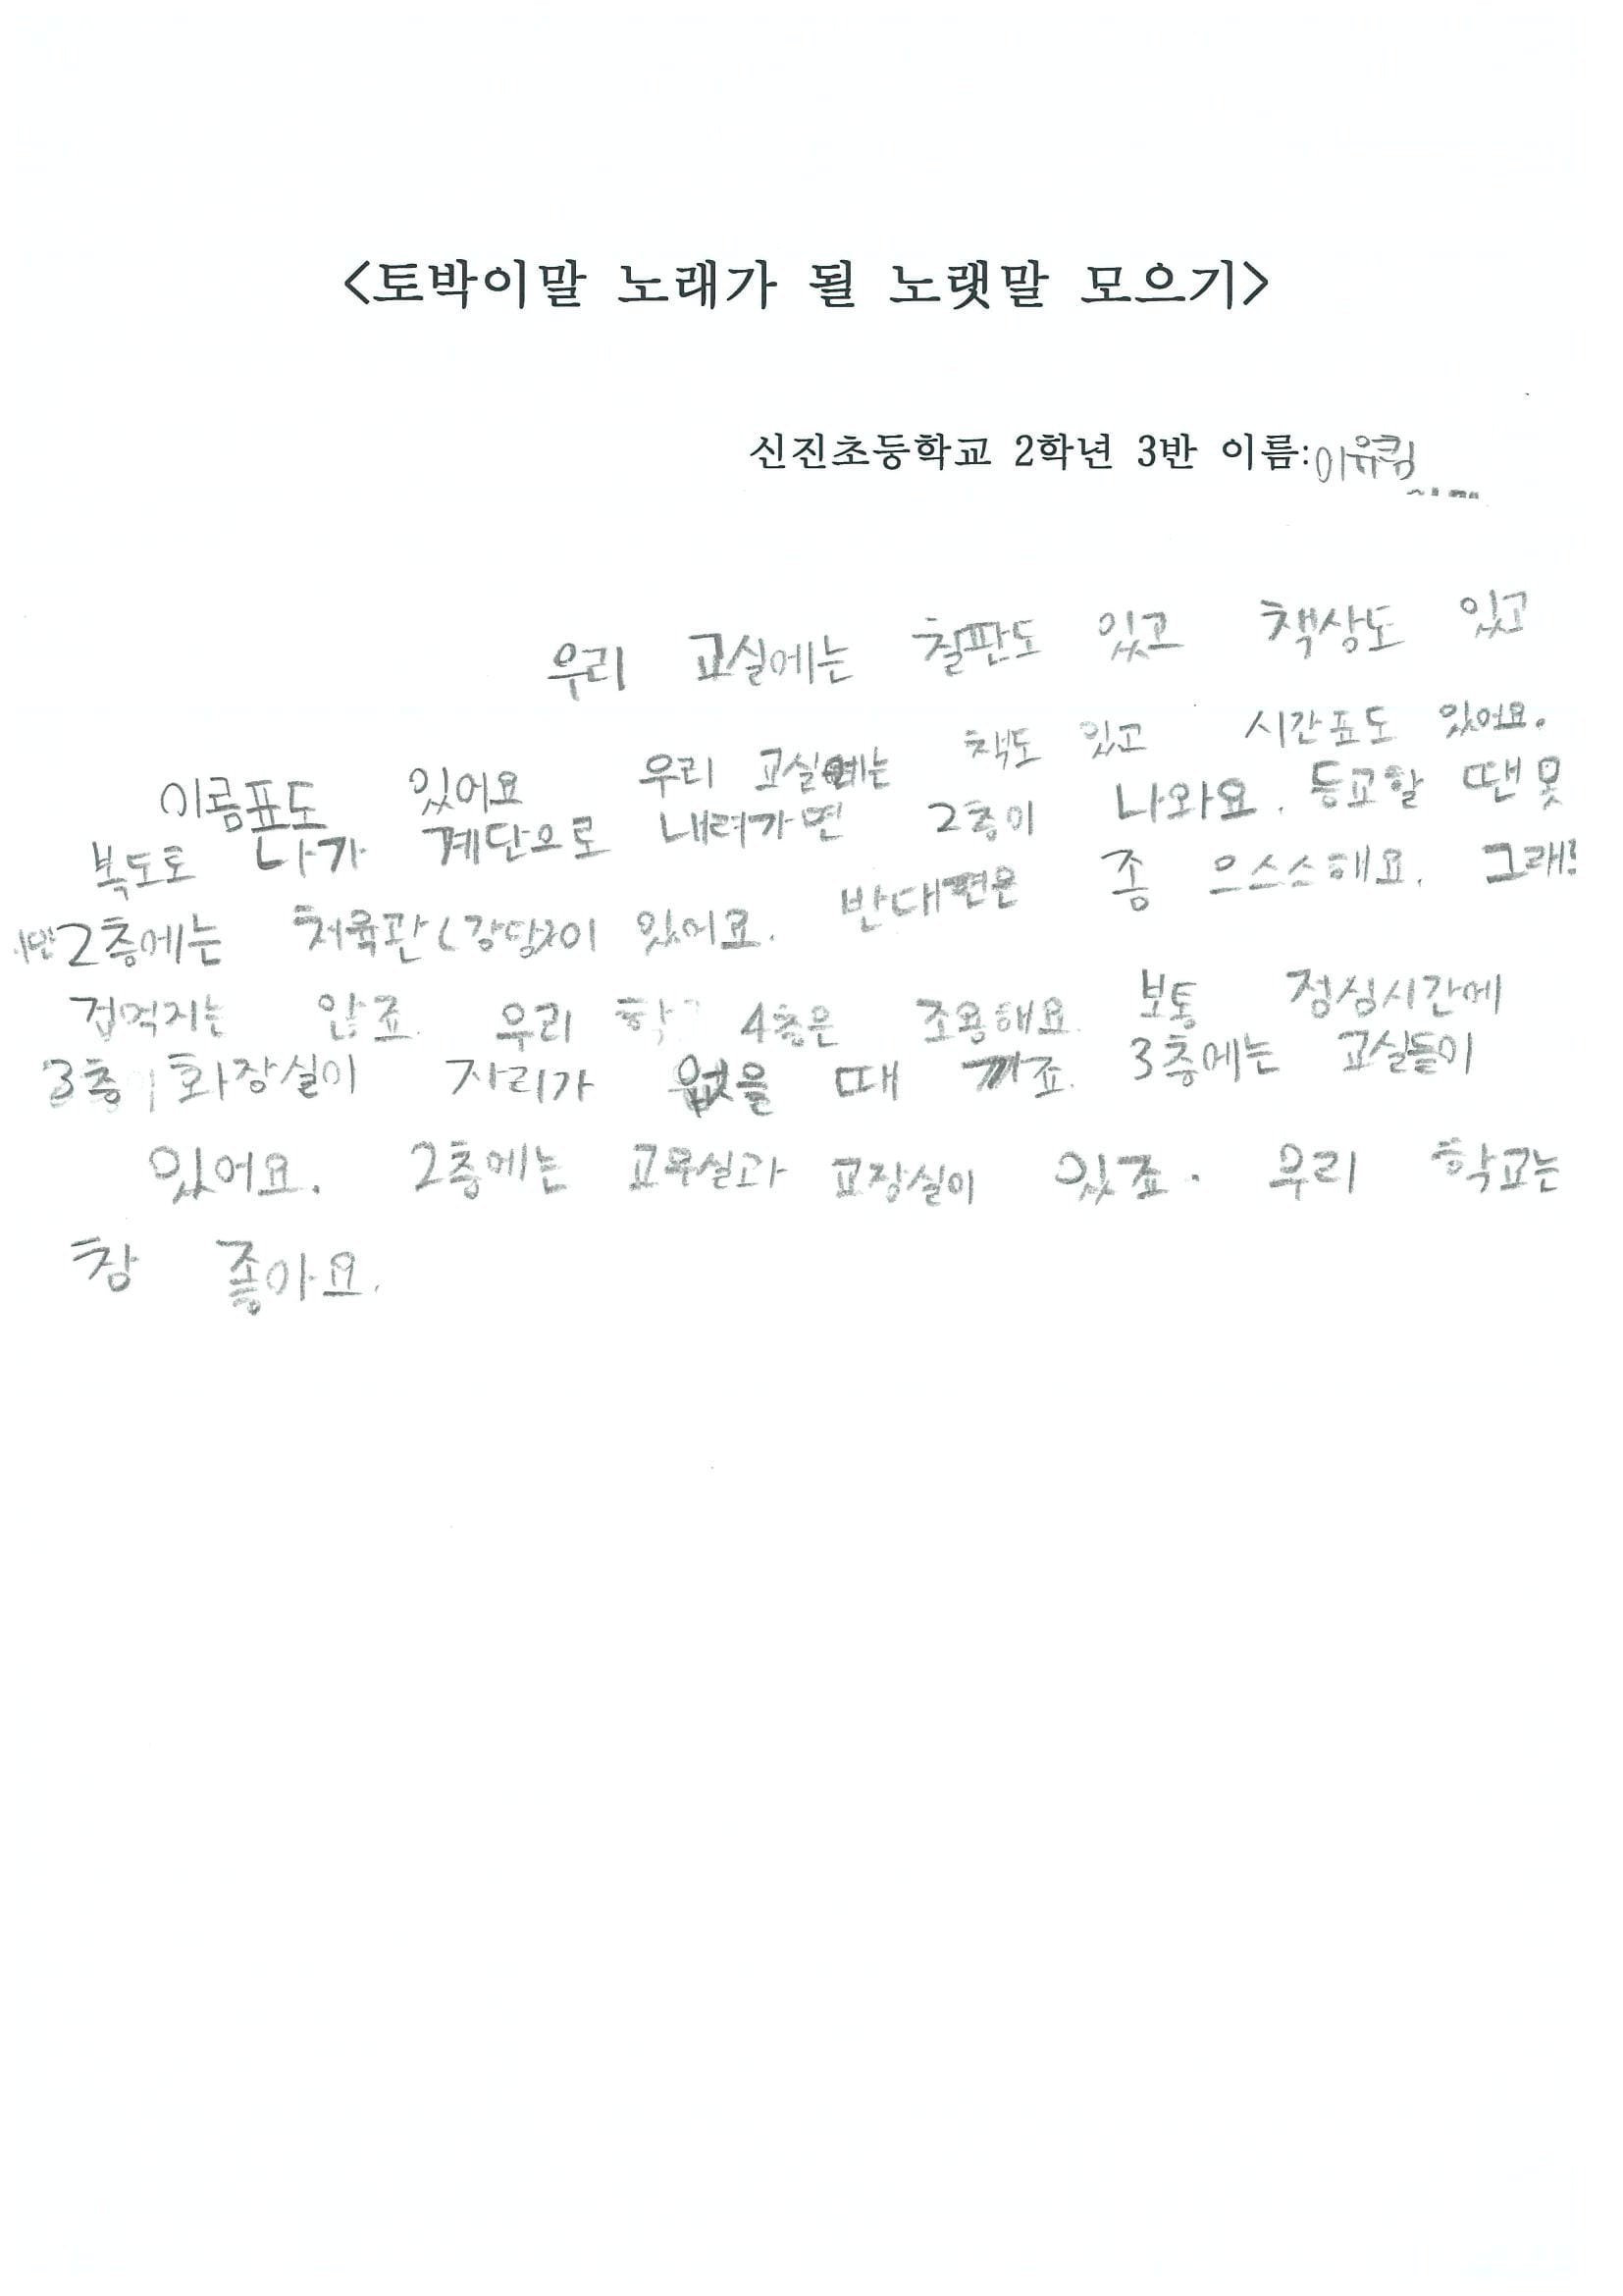 <토박이말 노래가 될 노랫말 모으기>
신진초등학교 2학년 3반 이름:이유림
우리 교실에는 칠판도 있고 책상도 있고
이름표도 있어요 우리 교실에는 책도 있고 시간표도 있어요.
복도로 나가 계단으로 내려가면 2층이 나와요. 등교할 땐 못
2층에는 처육관(강당)이 있어요. 반대편은 좀 으스스해요. 그래!
겁먹지는 않죠. 우리 학 4층은 조용해요. 보통 정심시간에
3층 화장실이 자리가 없을 때 까죠. 3층에는 교실들이
있어요. 2층에는 교무실과 교장실이 있죠. 우리 학교는
참 좋아요.